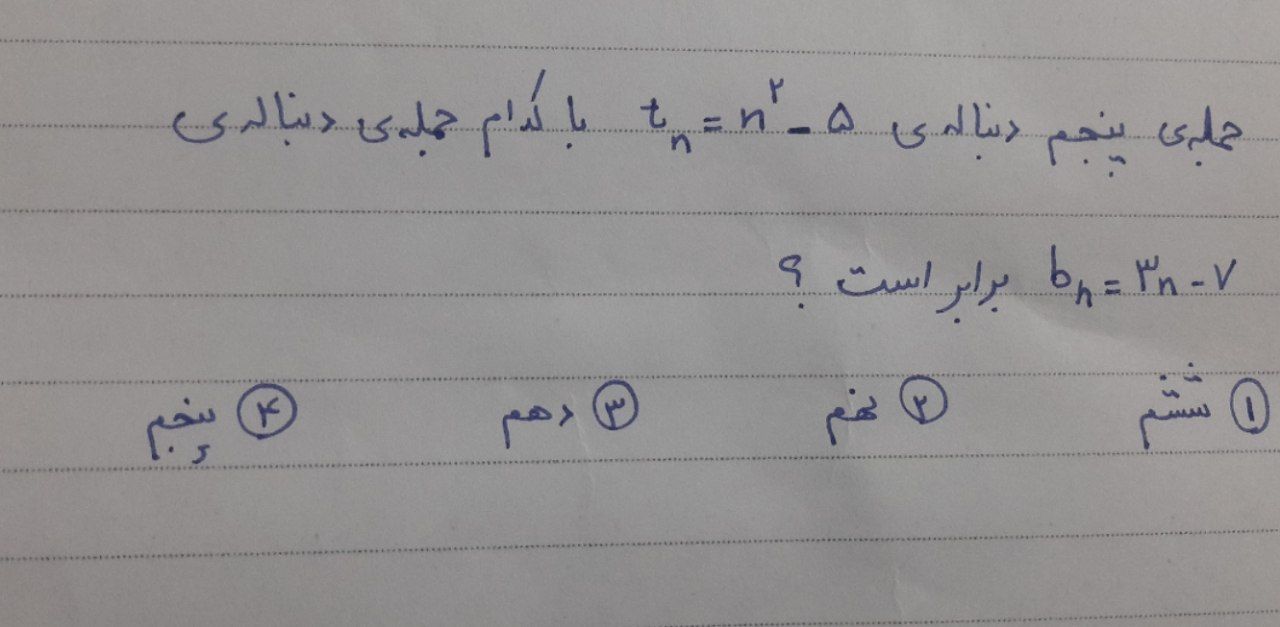 جمله‌ی پنجم دنباله‌ی tₙ = n² - ۵ با کدام جمله‌ی دنباله‌ی
bₙ = ۳n - ۷ برابر است ؟
۱ ششم ۲ نهم ۳ دهم ۴ پنجم